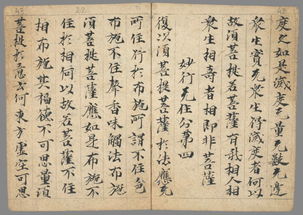 度之如是滅度无量无數无邊
衆生實无衆生得滅度者何以
故須菩提若菩薩有我相人相
衆生相壽者相即非菩薩
妙行无住分第四
復次須菩提菩薩於法應无
所住行於布施所謂不住色
布施不住聲香味觸法布施
須菩提菩薩應如是布施不
住於相何以故若菩薩不住
相布施其福德不可思量須
菩提於意云何東方虛空可思